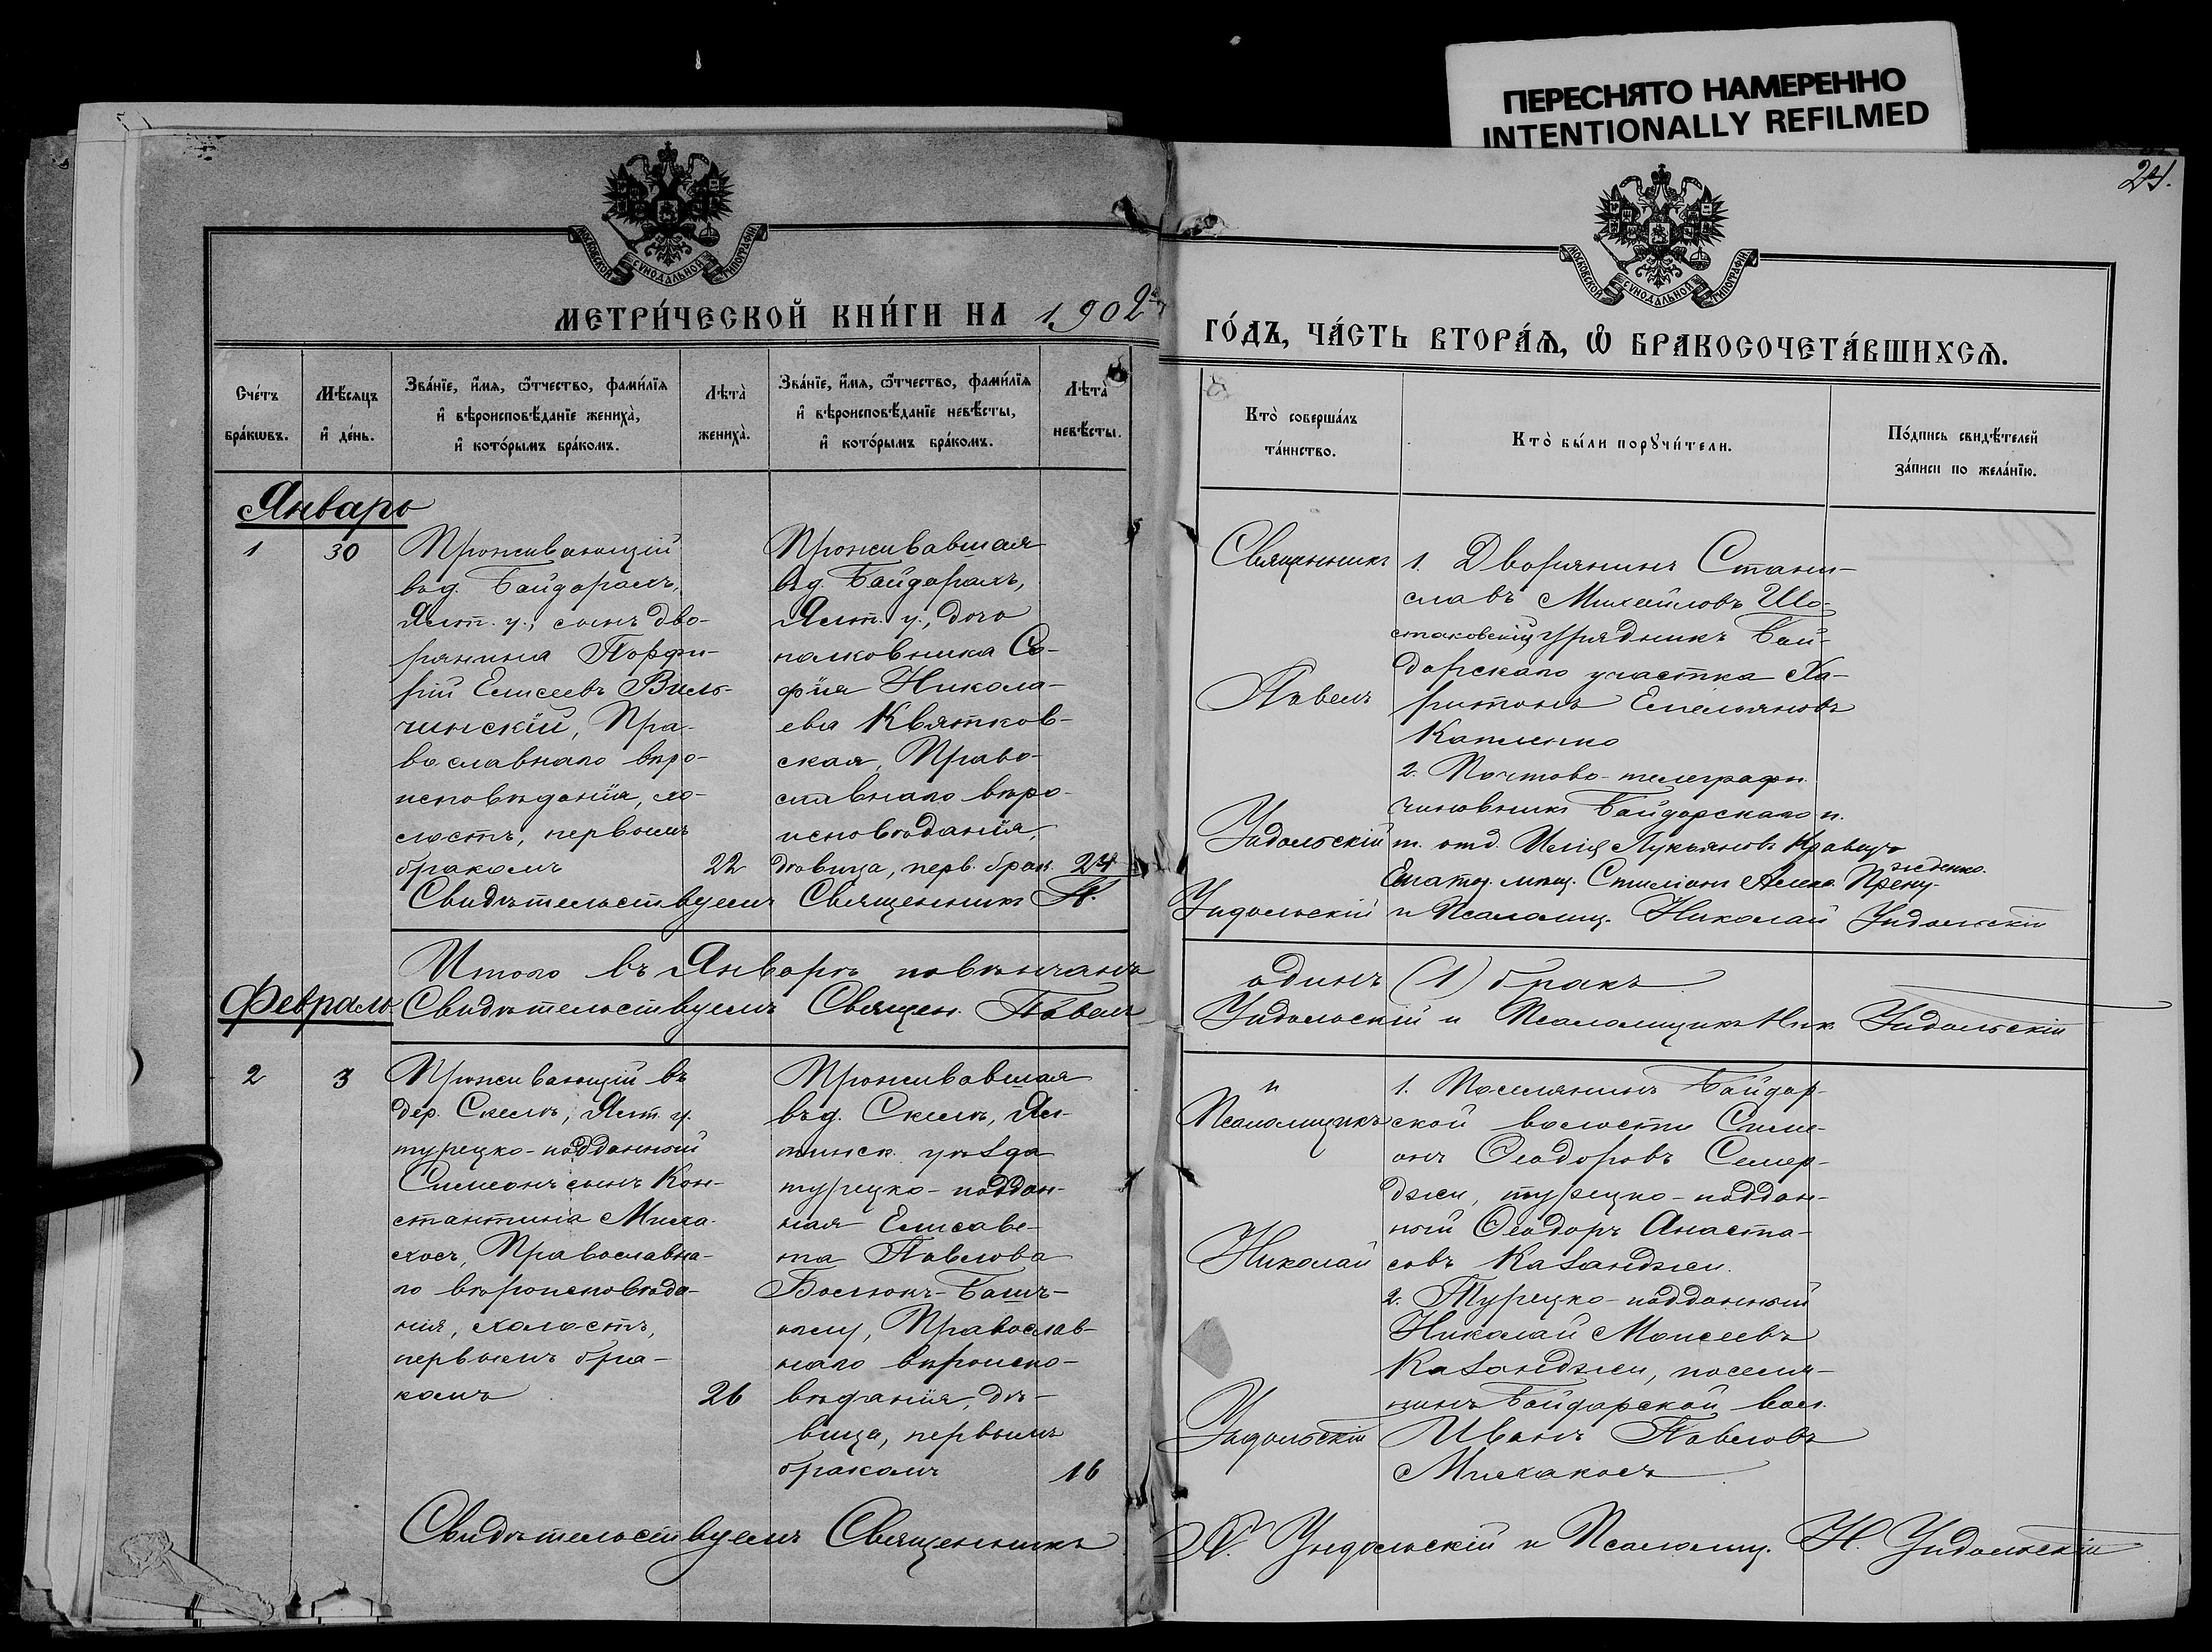 ПЕРЕСНЯТО НАМЕРЕННО
INTENTIONALLY REFILMED
24.
МОСКОВСКОЙ СѴНОДАЛЬНОЙ ТИПОГРАФІИ
МОСКОВСКОЙ СѴНОДАЛЬНОЙ ТИПОГРАФІИ
МЕТРИ́ЧЕСКОЙ КНИ́ГИ НА 1902
ГО́ДЪ, ЧА́СТЬ ВТОРА́Ѧ, Ѡ҆ БРАКОСОЧЕТА́ВШИХСѦ.
Сче́тъ бра́кѡвъ.
Мѣ́сяцъ и҆ де́нь.
Зва́нїе, и҆́мѧ, ѻ҆́тчество, фами́лїѧ
и҆ вѣроисповѣ́данїе жениха̀,
и҆ кото́рымъ бра́комъ.
Лѣта̀ жениха̀.
Зва́нїе, и҆́мѧ, ѻ҆́тчество, фами́лїѧ
и҆ вѣроисповѣ́данїе невѣ́сты,
и҆ кото́рымъ бра́комъ.
Лѣта̀ невѣ́сты.
Кто̀ соверша́лъ
та́инство.
Кто̀ бы́ли порꙋчи́тели.
По́дпись свидѣ́телей
за́писи по жела́нїю.
Январь
1
30
Проживающій
въ д. Байдарахъ,
Ялт. у., сынъ дво-
рянина Порфи-
рій Елисеевъ Виль-
чинскій, Пра-
вославнаго вѣро-
исповѣданія, хо-
лостъ, первымъ
бракомъ
22
Проживавшая
въ д. Байдарахъ,
Ялт. у., дочь
полковника Со-
фія Никола-
ева Квятков-
ская, Право-
славнаго вѣро-
исповѣданія,
дѣвица, перв. брак.
24
Священникъ
Павелъ
Ундольскій
1. Дворянинъ Стани-
славъ Михайловъ Шо-
стаковскій, урядникъ Бай-
дарскаго участка Ха-
ритонъ Емельяновъ
2. Почтово-телеграфн.
чиновникъ Байдарскаго п.
т. отд. Илія Лукьяновъ Кравцъ
Свидѣтельствуемъ Священникъ П.
Ундольскій и Псаломщ. Николай Ундольскій
Итого въ Январѣ повѣнчанъ
одинъ (1) бракъ
Февраль
Свидѣтельствуемъ Священ. Павелъ
Ундольскій и Псаломщикъ Ник. Ундольскій
2
3
Проживающій въ
дер. Скеля, Ялт. у.
турецко-подданный
Симеонъ сынъ Кон-
стантина Миха-
, Православна-
го вѣроисповѣда-
нія, холостъ,
первымъ бра-
комъ
26
Проживавшая
въ д. Скеля, Ял-
тинск. уѣзда
турецко-поддан-
ная Елисаве-
та Павлова
Православ-
наго вѣроиспо-
вѣданія, дѣ-
вица, первымъ
бракомъ
16
и
Псаломщикъ
Николай
Ундольскій
1. Поселянинъ Байдар-
ской волости Симе-
онъ Ѳеодоровъ Семер-
джи, турецко-поддан-
ный Ѳеодоръ Анаста-
совъ Казанджи.
2. Турецко-подданный
Николай Моисеевъ
Казанджи, поселя-
нинъ Байдарской вол.
Иванъ Павловъ
Свидѣтельствуемъ Священникъ
П. Ундольскій и Псаломщ. Н. Ундольскій